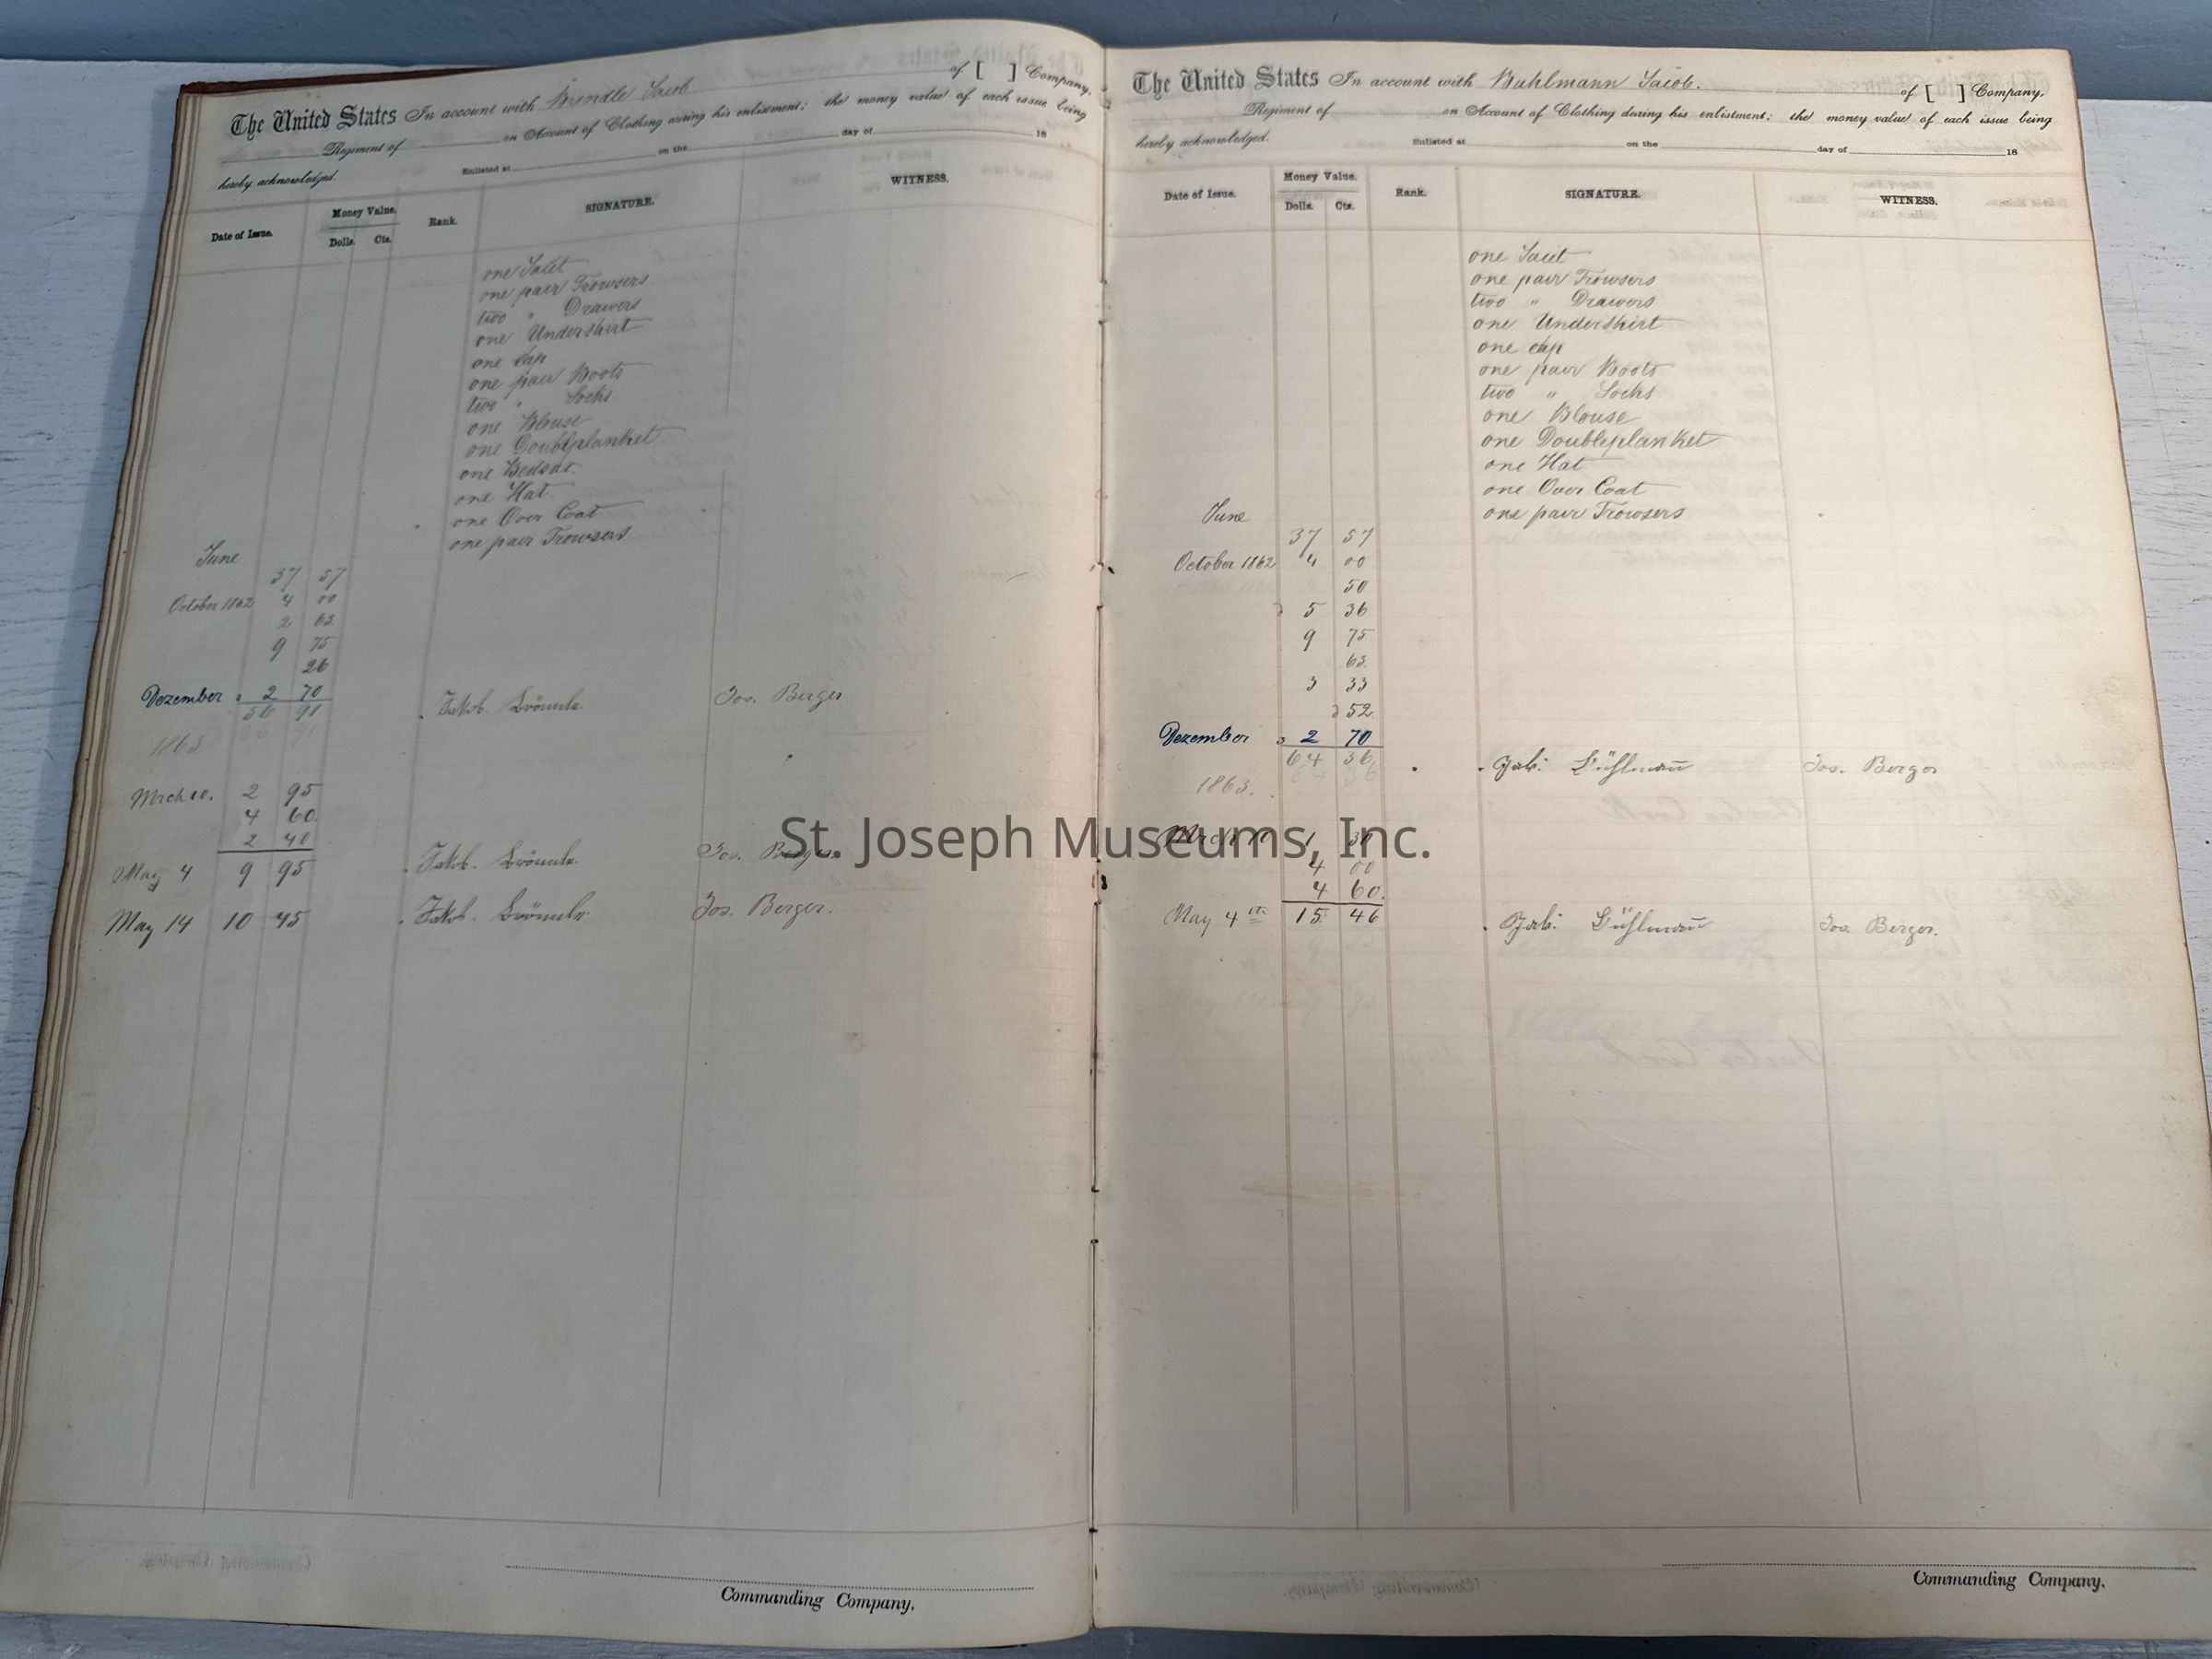 The United States In account with Brendle Jacob of [ ] Company,
Regiment of on Account of Clothing during his enlistment; the money value of each issue being
hereby acknowledged. Enlisted at on the day of 18
Date of Issue. Money Value. Rank. SIGNATURE. WITNESS.
Dolls. Cts.
one Jacet
one pair Trowsers
two " Drawers
one Undershirt
one cap
one pair Boots
two " Socks
one Blouse
one Doubleplanket
one Hat.
one Over Coat
one pair Trowsers
June
37 57
October 1862 4 00
2 63
9 75
26
Dezember " 2 70
56 91 Jakob. Brönnle Jos. Berger
1863
Mrch 10. 2 95
4 60
2 40
May 4 9 95 Jakob. Brönnle Jos. Berger
May 14 10 45 Jakob. Brönnle Jos. Berger.
Commanding Company.
The United States In account with Buhlmann Jacob. of [ ] Company,
Regiment of on Account of Clothing during his enlistment; the money value of each issue being
hereby acknowledged. Enlisted at on the day of 18
Date of Issue. Money Value. Rank. SIGNATURE. WITNESS.
Dolls. Cts.
one Jacet
one pair Trowsers
two " Drawers
one Undershirt
one cap
one pair Boots
two " Socks
one Blouse
one Doubleplanket
one Hat
one Over Coat
June one pair Trowsers
37 57
October 1862 4 00
50
5 36
9 75
63
3 33
52
Dezember " 2 70
64 36 Jak: Bühlman̄ Jos. Berger
1863.
Mrch 10 1
4 00
4 60.
May 4th 15 46 Jak: Bühlman̄ Jos. Berger.
Commanding Company.
St. Joseph Museums, Inc.